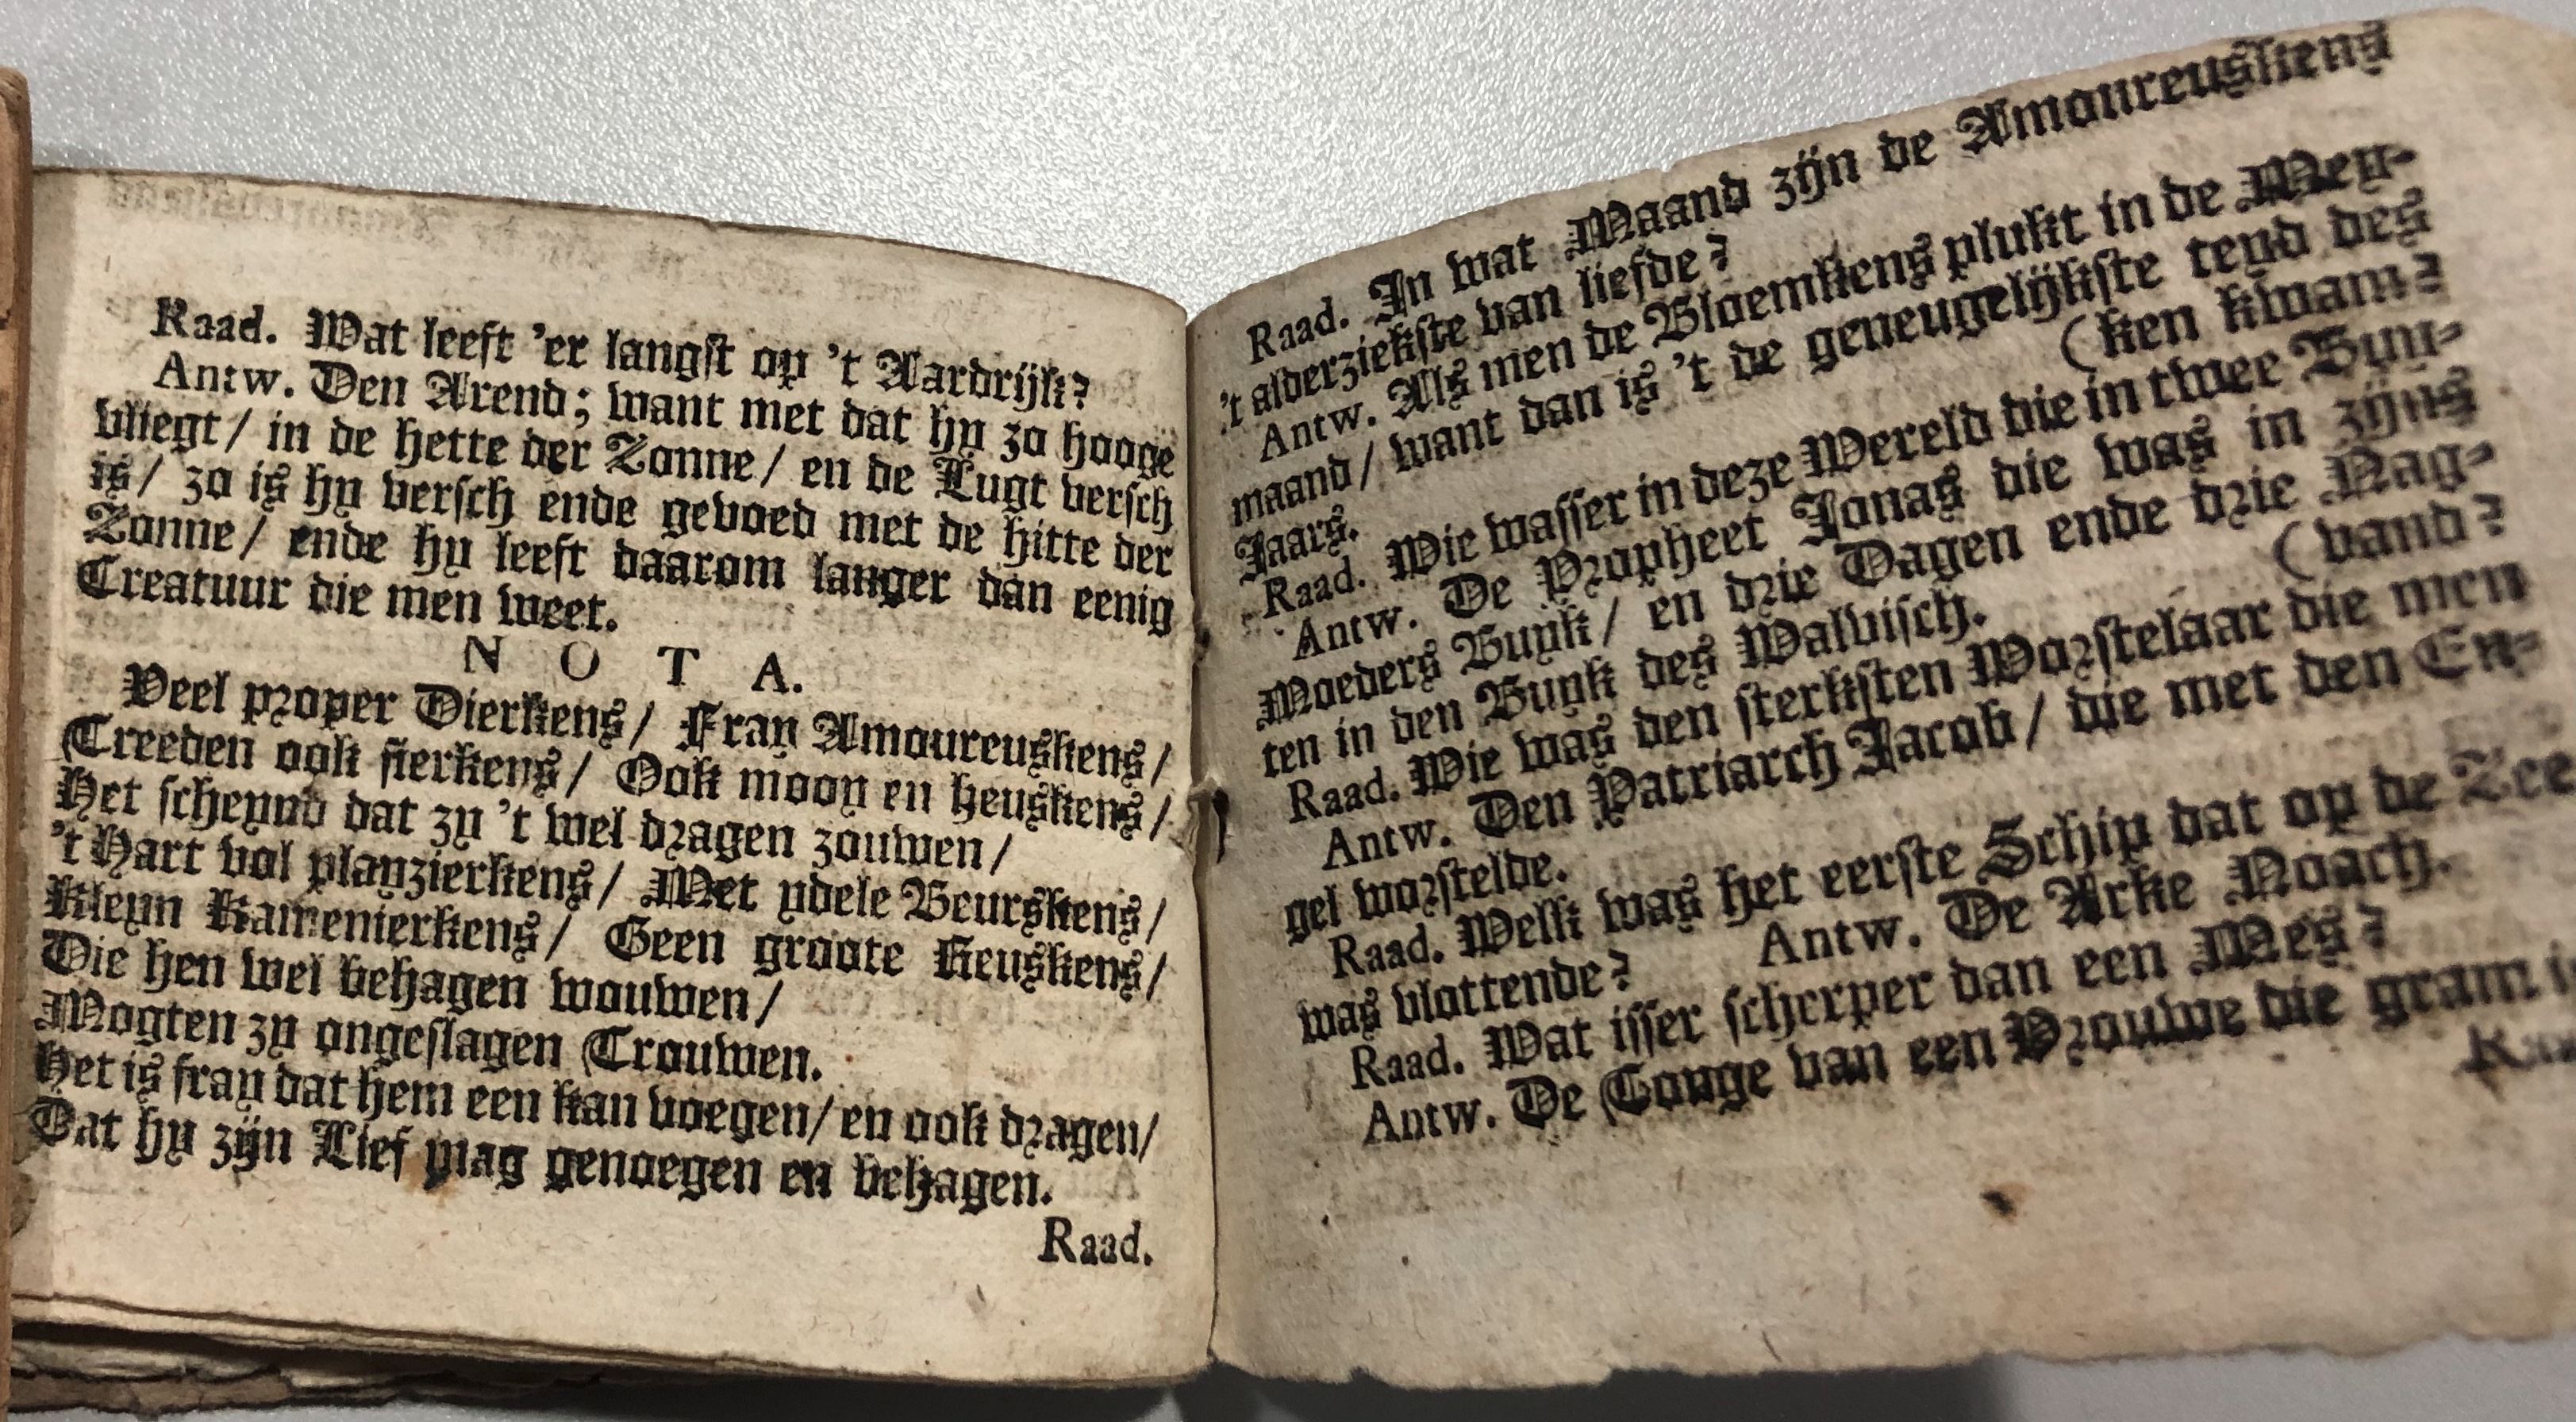 Raad. Wat leeft 'er langst op 't Aardrijk?
Antw. Den Arend; want met dat hy zo hooge
vliegt/ in de hette der Zonne/ en de Lugt versch
is/ zo is hy versch ende gevoed met de hitte der
Zonne/ ende hy leeft daarom langer dan eenig
Creatuur die men weet.
N O T A.
Veel proper Dierkens/ Fray Amoureuskens/
Treeden ook fierkens/ Ook mooy en heuskens/
Het scheynd dat zy 't wel dragen zouwen/
't Hart vol playzierkens/ Met ydele Beurskens/
Kleyn Kamenierkens/ Geen groote Keuskens/
Die hen wel behagen wouwen/
Mogten zy ongeslagen Trouwen.
Het is fray dat hem een kan voegen/ en ook dragen/
Dat hy zijn Lief mag genoegen en behagen.
Raad.
Raad. In wat Maand zijn de Amoureuskens
't alderziekste van liefde?
Antw. Als men de Bloemkens plukt in de Mey-
maand/ want dan is 't de geneugelijkste teyd des
Jaars. (ken kwam?
Raad. Wie wasser in deze Wereld die in twee Buy-
Antw. De Propheet Jonas die was in zijns
Moeders Buyk/ en drie Dagen ende drie Nag-
ten in den Buyk des Walvisch. (vand?
Raad. Wie was den sterksten Worstelaar die men
Antw. Den Patriarch Jacob/ die met den En-
gel worstelde.
Raad. Welk was het eerste Schip dat op de Zee
was vlottende? Antw. De Arke Noach.
Raad. Wat isser scherper dan een Mes?
Antw. De Tonge van een Vrouwe die gram is